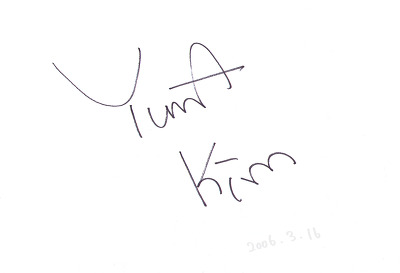 YunA
Kim
2006.3.16